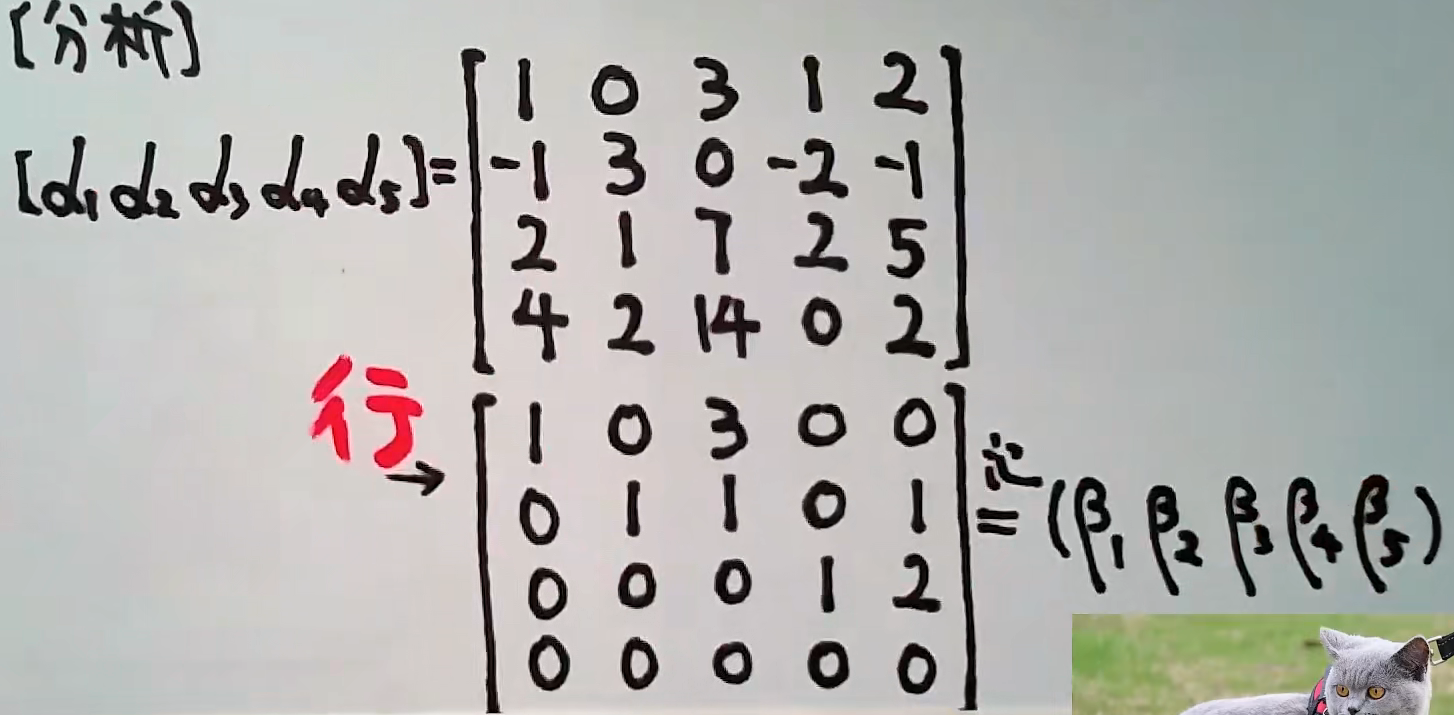 [分析]
[α₁ α₂ α₃ α₄ α₅] =
1 0 3 1 2
-1 3 0 -2 -1
2 1 7 2 5
4 2 14 0 2
行
→
1 0 3 0 0
0 1 1 0 1
0 0 0 1 2
0 0 0 0 0
记
= (β₁ β₂ β₃ β₄ β₅)